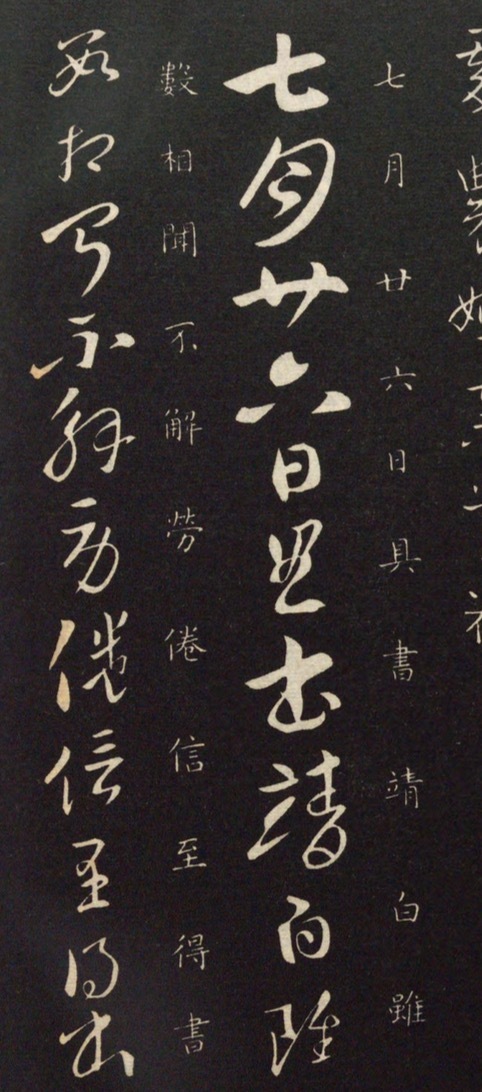 七月廿六日具書靖白雖
七月廿六日具書靖白雖
數相聞不解勞倦信至得書
數相聞不解勞倦信至得書